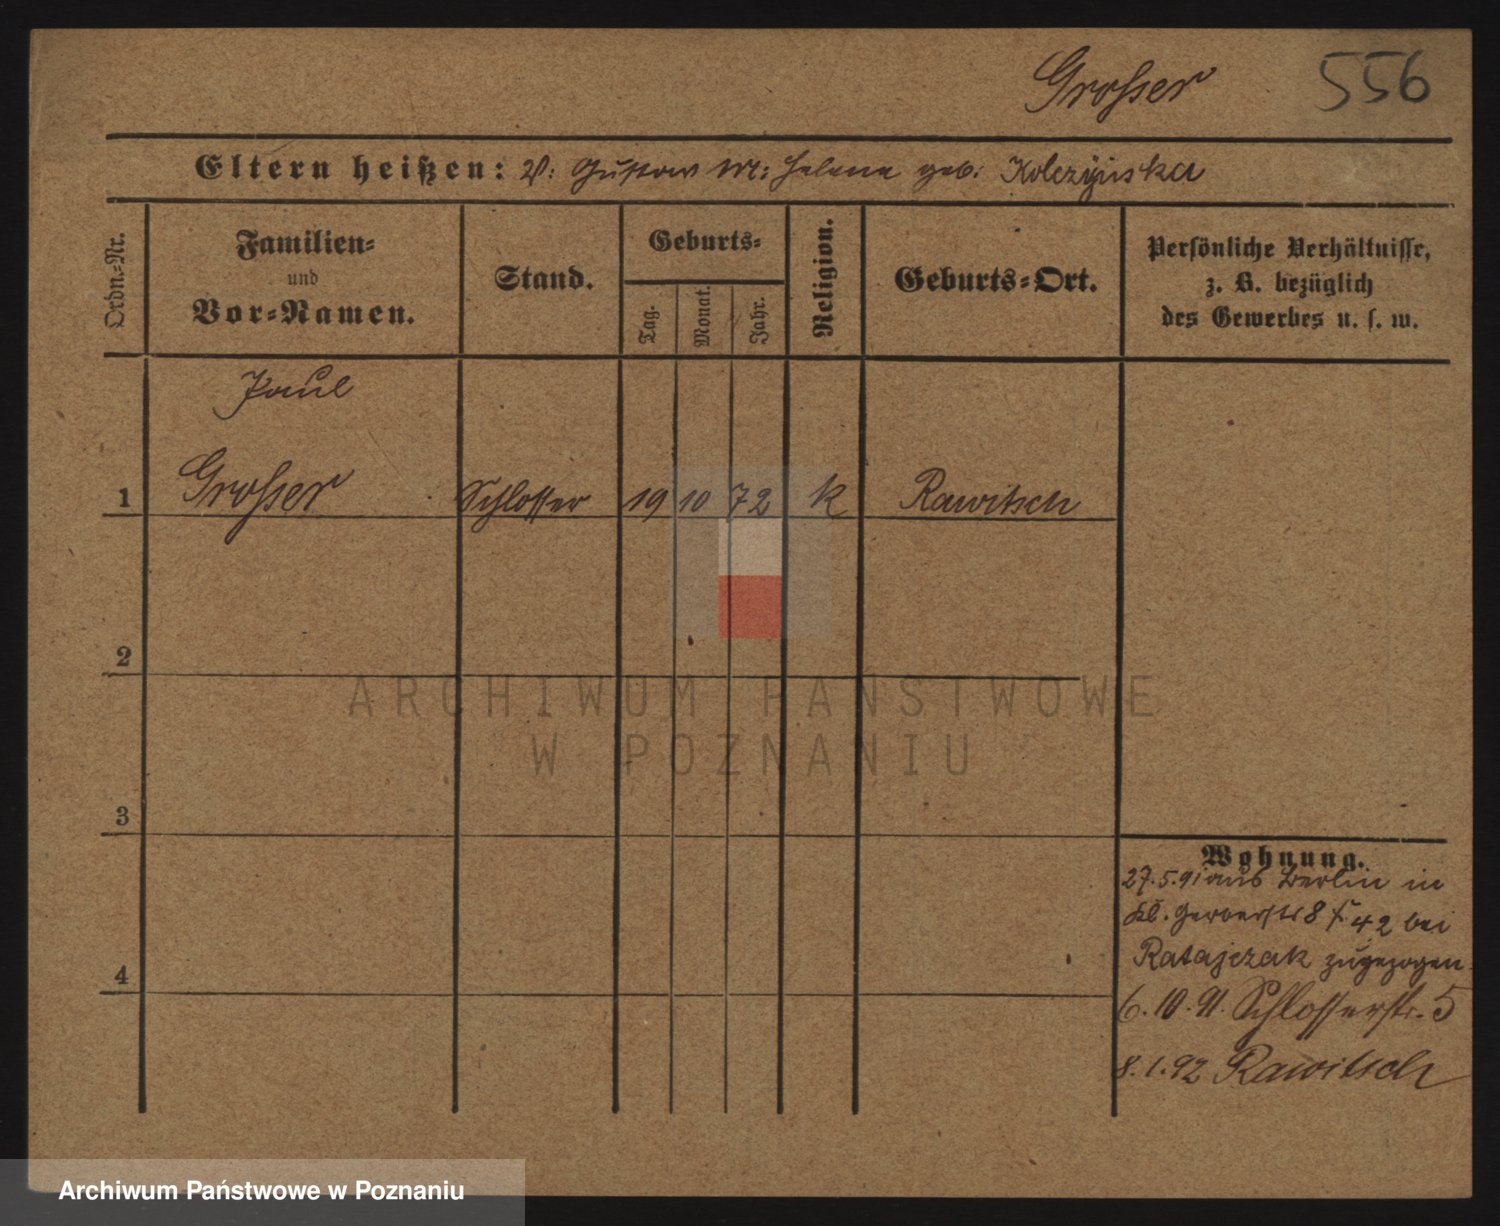 Grosser 556
Eltern heißen: V: Gustav M: Helene geb: Kolczyńska
Ordn.-Nr.
Familien-
und
Vor-Namen.
Stand.
Geburts-
Tag.
Monat.
Jahr.
Religion.
Geburts-Ort.
Persönliche Verhältnisse,
z. B. bezüglich
des Gewerbes u. s. w.
Paul
1 Grosser Schlosser 19 10 72 k Rawitsch
2
3
4
Wohnung.
27.5.91 aus Berlin in
Kl. Gerberstr 8 42 bei
Ratajczak zugezogen.
6.10.91. Schlosserstr. 5
8.1.92 Rawitsch
ARCHIWUM PAŃSTWOWE
W POZNANIU
Archiwum Państwowe w Poznaniu